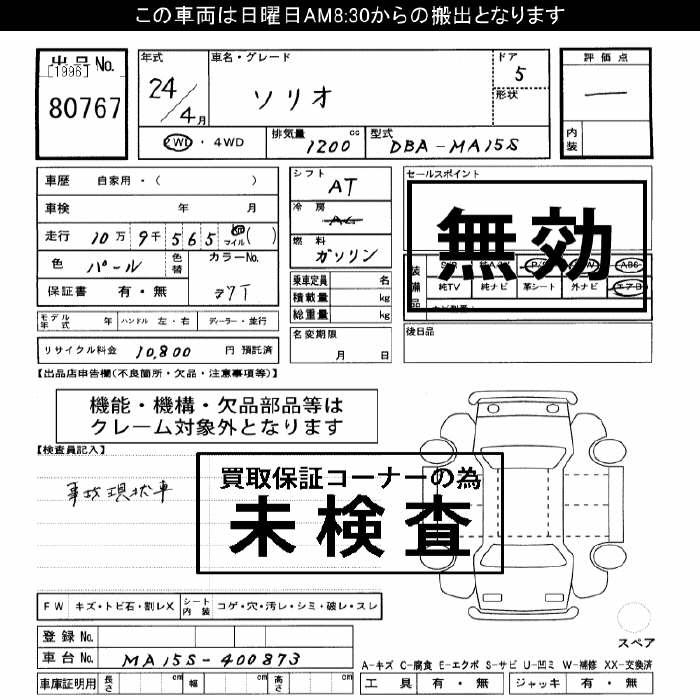 この車両は日曜日AM8:30からの搬出となります
出品No.
[1996]
80767
年式
24/4月
車名・グレード
ソリオ
ドア
5
形状
評価点
―
内装
2WD・4WD
排気量 1200 cc
型式 DBA-MA15S
車歴 自家用・( )
車検 年 月
走行 10万 9千 565 マイル( )
色 パール
色替
カラーNo.
保証書 有・無
シフト AT
冷房 AC
燃料 ガソリン
乗車定員 名
積載量 kg
総重量 kg
セールスポイント
無効
装備品
P/S
ABS
純TV 純ナビ 革シート 外ナビ エアロ
モデル年式 年 ハンドル 左・右 ディーラー・並行
名変期限 月 日
後日品
リサイクル料金 10,800 円 預託済
【出品店申告欄(不良箇所・欠品・注意事項等)】
機能・機構・欠品部品等は
クレーム対象外となります
【検査員記入】
事故現状車
買取保証コーナーの為
未検査
FW キズ・トビ石・割レX シート内装 コゲ・穴・汚レ・シミ・破レ・スレ
登録No.
車台No. MA15S-400873
スペア
A-キズ C-腐食 E-エクボ S-サビ U-凹ミ W-補修 XX-交換済
車庫証明用 長さ cm 幅 cm 高さ cm
工具 有・無 ジャッキ 有・無